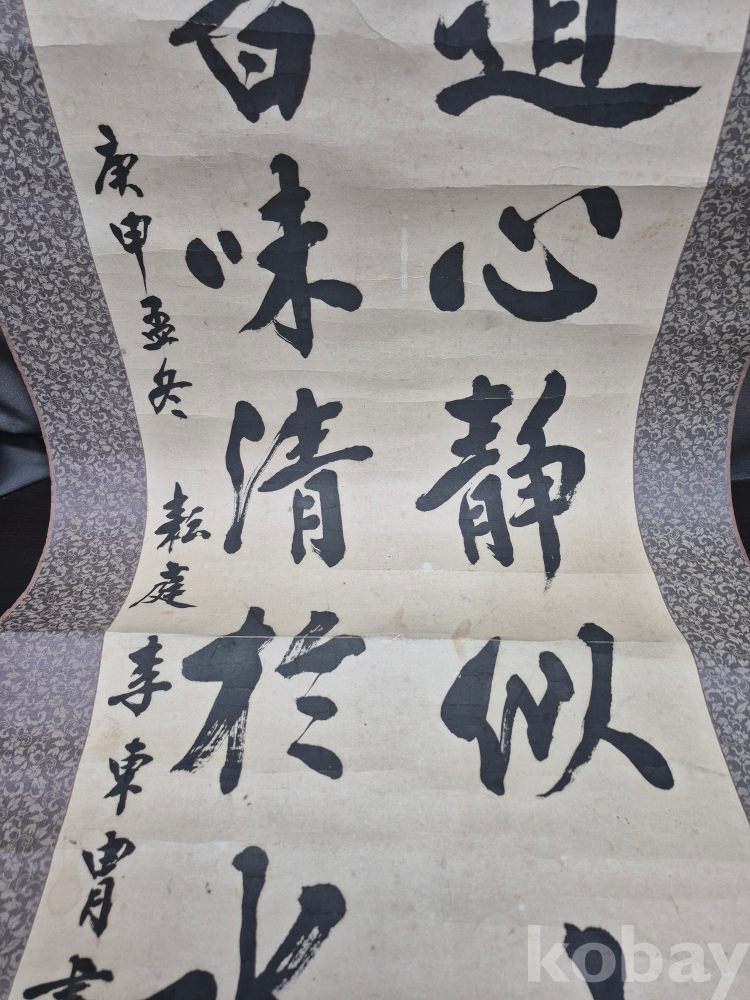 道心靜似
書味清於水
庚申孟冬 耘庭 李東胄書
kobay